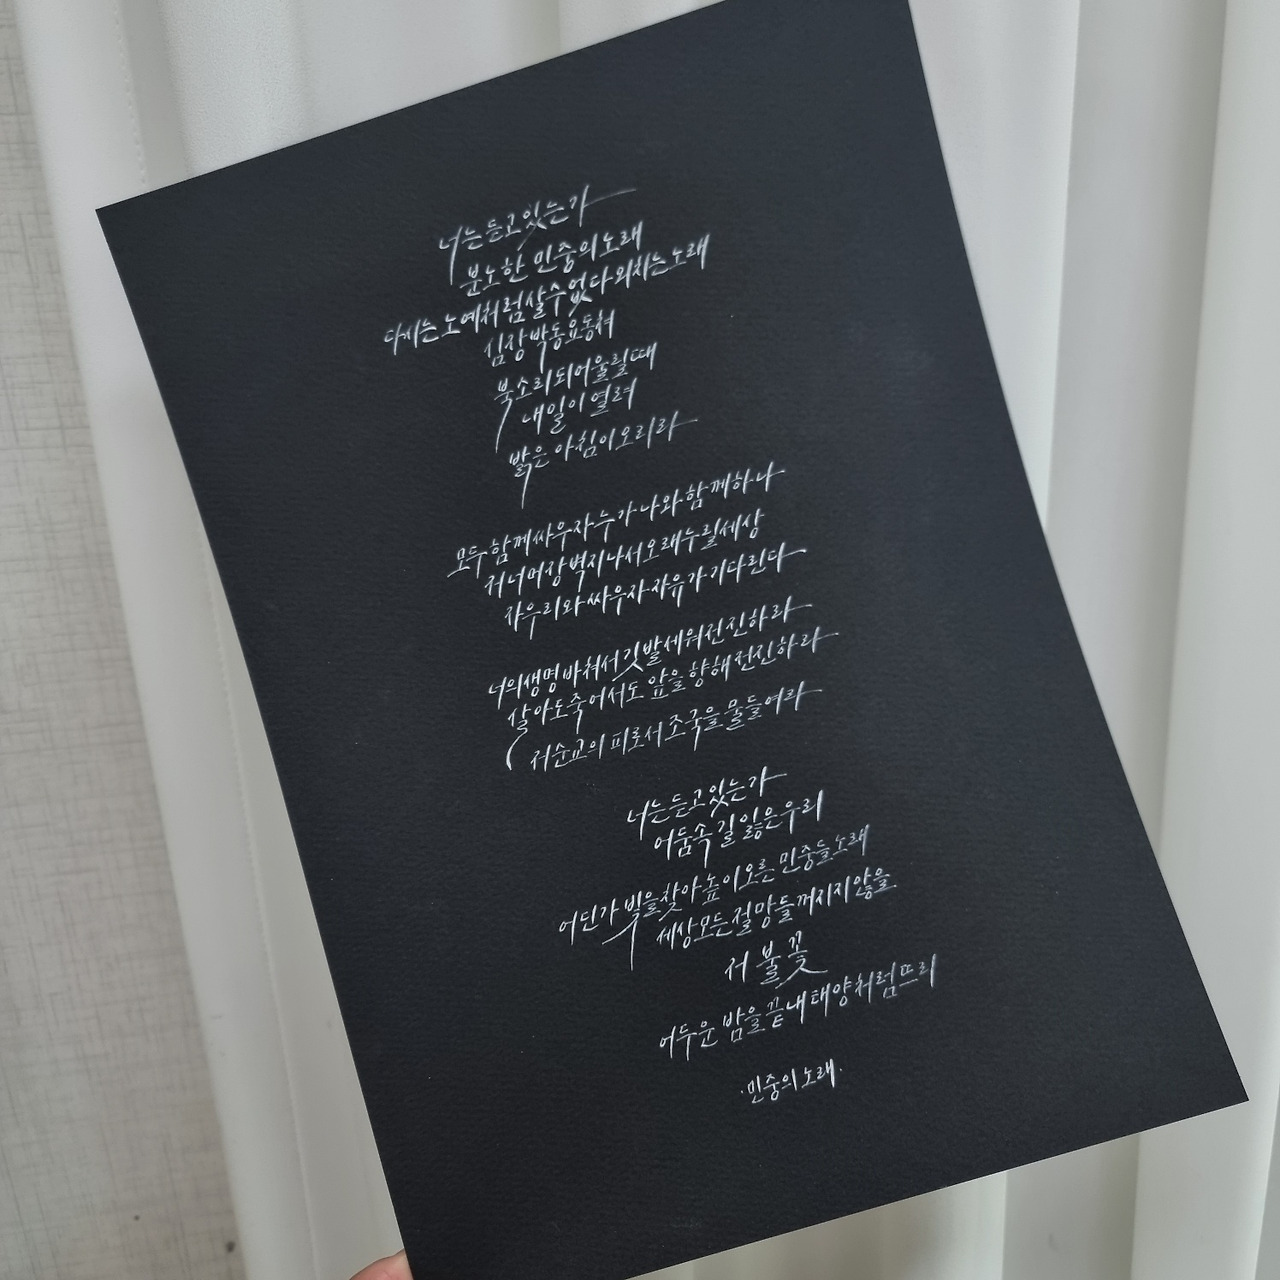 너는 듣고 있는가
분노한 민중의 노래
다시는 노예처럼 살 수 없다 외치는 노래
심장박동 요동쳐
북소리 되어 울릴 때
내일이 열려
밝은 아침이 오리라
모두 함께 싸우자 누가 나와 함께하나
저 너머 장벽 지나서 오래 누릴 세상
자 우리와 싸우자 자유가 기다린다
너의 생명 바쳐서 깃발 세워 전진하라
살아도 죽어서도 앞을 향해 전진하라
저 순교의 피로서 조국을 물들여라
너는 듣고 있는가
어둠 속 길 잃은 우리
어딘가 빛을 찾아 높이 오른 민중들 노래
세상 모든 절망들 꺼지지 않을
저 불꽃
어두운 밤을 끝내 태양처럼 뜨리
·민중의 노래·